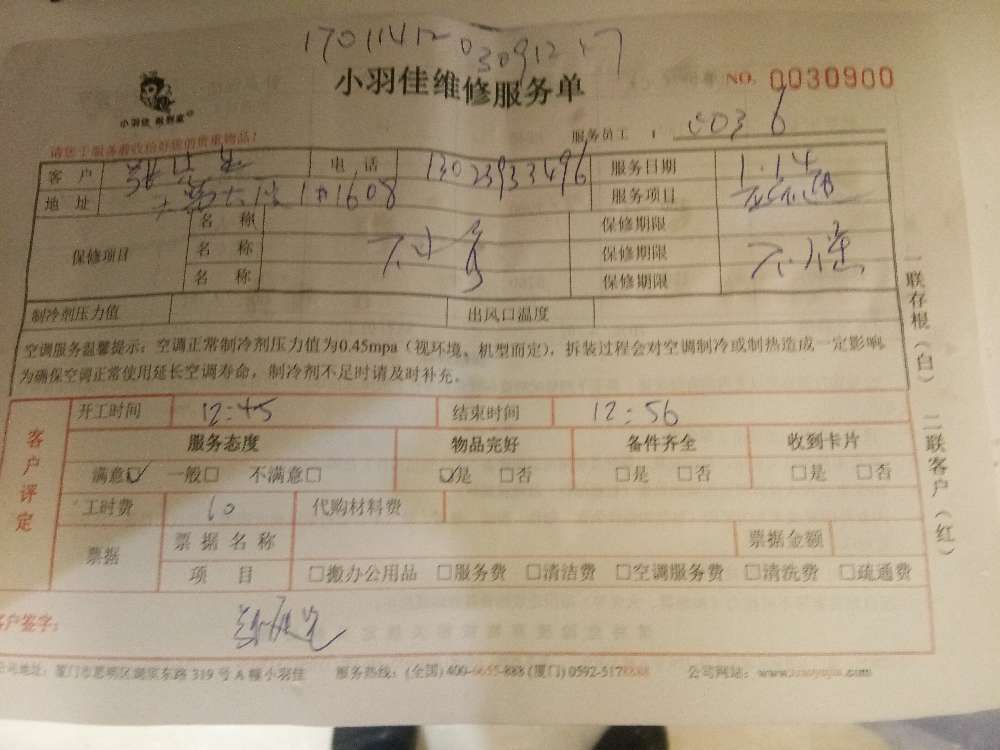 小羽佳维修服务单
NO. 0030900
小羽佳
服务员工： 0036
请您于服务前收拾好您的贵重物品！
客户 电话 服务日期 1.14
地址 1#1608 服务项目
保修项目 名称 保修期限
名称 保修期限
名称 保修期限
制冷剂压力值 出风口温度
空调服务温馨提示：空调正常制冷剂压力值为0.45mpa（视环境、机型而定），拆装过程会对空调制冷或制热造成一定影响，
为确保空调正常使用延长空调寿命，制冷剂不足时请及时补充。
一联存根（白） 二联客户（红）
客户评定
开工时间 12:45 结束时间 12:56
服务态度 物品完好 备件齐全 收到卡片
满意☑ 一般□ 不满意□ ☑是 □否 □是 □否 □是 □否
工时费 60 代购材料费
票据 票据名称 票据金额
项目 □搬办公用品 □服务费 □清洁费 □空调服务费 □清洗费 □疏通费
客户签字：
公司地址：厦门市思明区湖滨东路 319 号 A 幢小羽佳 服务热线：(全国) 400-6655-888 (厦门) 0592-5178888 公司网站：